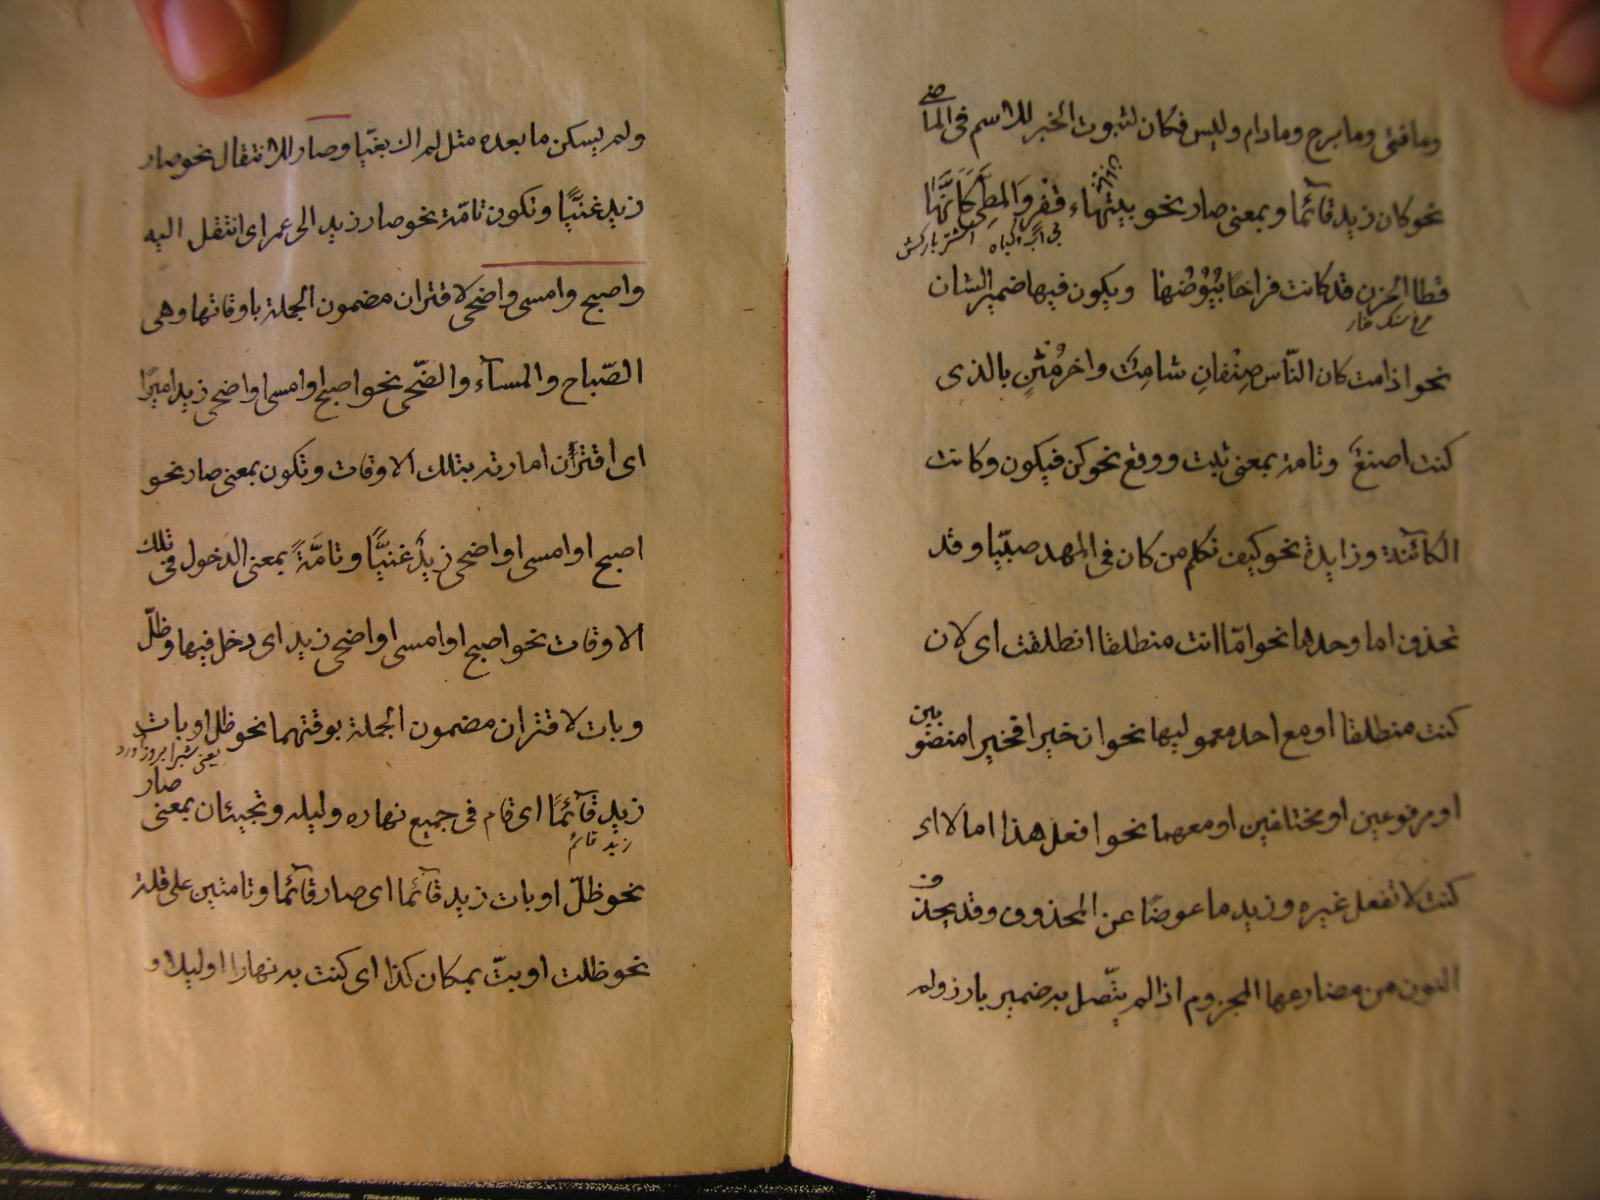 وما فتئ وما برح وما دام وليس فكان لثبوت الخبر للاسم فى الماضى
نحو كان زيد قائما وبمعنى صار نحو بتيهاء قفر والمطى كأنها
بى آب وكياه
قطا الحزن قد كانت فراخا بيوضها ويكون فيها ضمير الشان
نحو اذا مت كان الناس صنفان شامت واخر مثن بالذى
كنت اصنع وتامة بمعنى ثبت ووقع نحو كن فيكون وكانت
الكائنة وزايدة نحو كيف تكلم من كان فى المهد صبيا وقد
تحذف اما وحدها نحو امّا انت منطلقا انطلقت اى لان
كنت منطلقا او مع احد معموليها نحو ان خيرا فخير امنصوبين
او مرفوعين او مختلفين او معهما نحو افعل هذا اما لا اى
كنت لا تفعل غيره وزيد ما عوضا عن المحذوف وقد يحذف
النون من مضارعها المجزوم اذا لم يتّصل به ضمير بارز ولم
ولم يسكن ما بعده مثل لم اك بغيّا وصار للانتقال نحو صار
زيد غنيّا وتكون تامّة نحو صار زيد الى عمر اى انتقل اليه
واصبح وامسى واضحى لاقتران مضمون الجملة باوقاتها وهى
الصّباح والمسآء والضّحى نحو اصبح او امسى او اضحى زيد اميرا
اى اقترن امارته بتلك الاوقات وتكون بمعنى صار نحو
اصبح او امسى او اضحى زيد غنيّا وتامّة بمعنى الدخول فى تلك
الاوقات نحو اصبح او امسى او اضحى زيد اى دخل فيها وظلّ
وبات لاقتران مضمون الجملة بوقتهما نحو ظل او بات
زيد قآئما اى قام فى جميع نهاره وليله وتجيئان بمعنى صار
زيد قائم
نحو ظلّ او بات زيد قآئما اى صار قآئما وتامتين على قلة
نحو ظلت او بتّ بمكان كذا اى كنت به نهارا او ليلا و